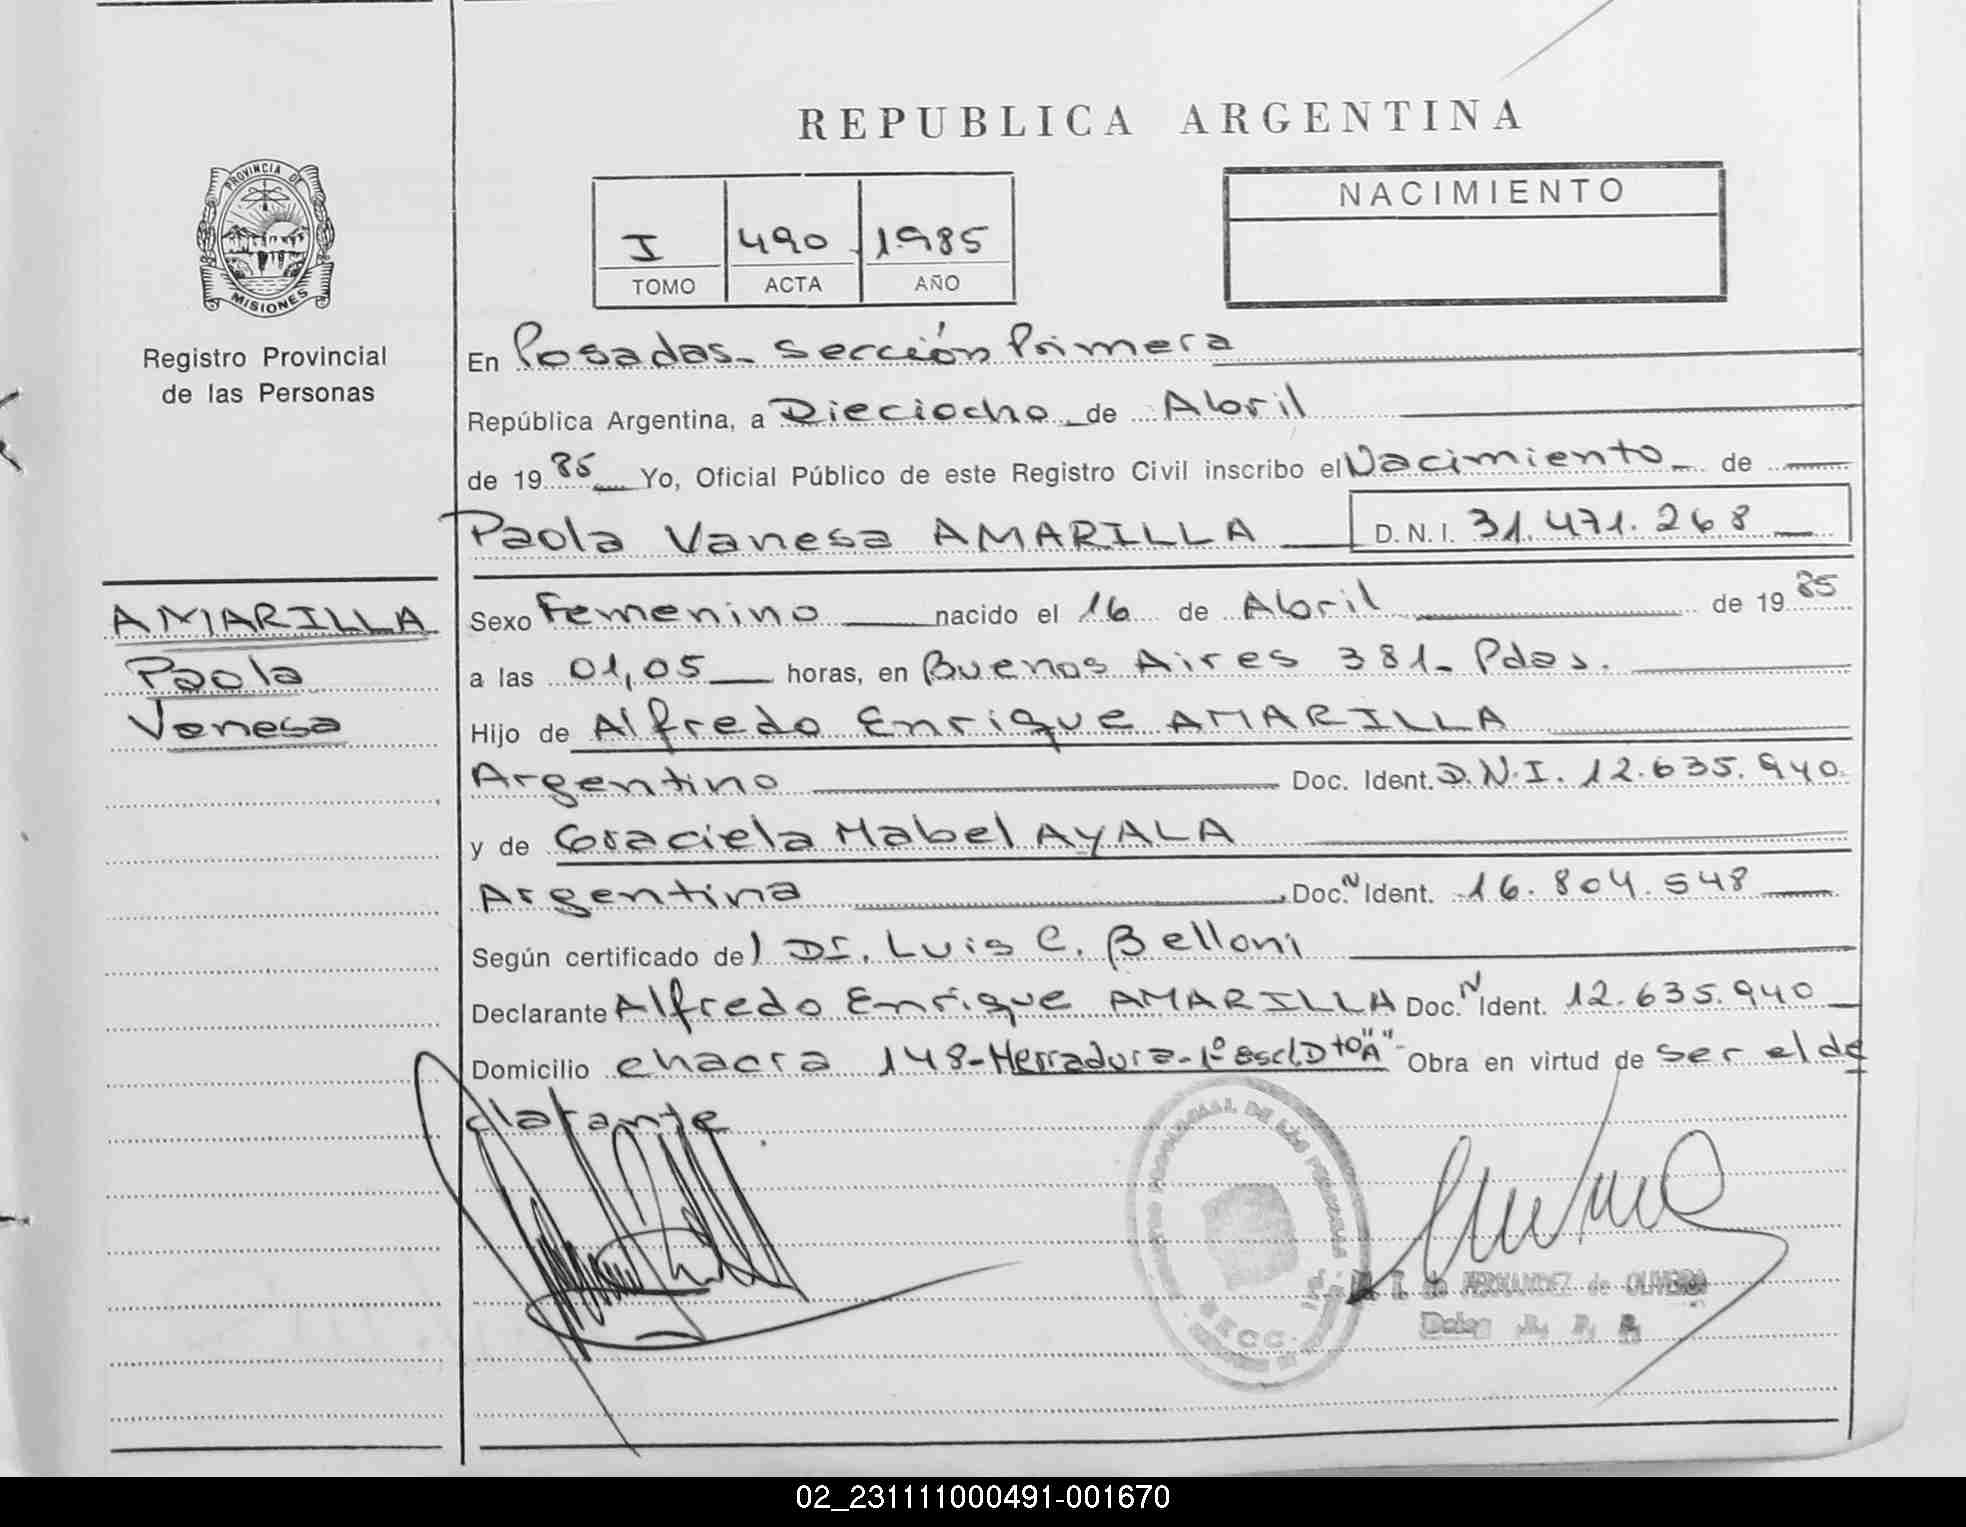 REPUBLICA ARGENTINA
PROVINCIA DE
MISIONES
Registro Provincial
de las Personas
I 490 1985
TOMO ACTA AÑO
NACIMIENTO
En Posadas - Sección Primera
República Argentina, a Dieciocho de Abril
de 1985 Yo, Oficial Público de este Registro Civil inscribo el Nacimiento de
Paola Vanesa AMARILLA D.N.I. 31.471.268
AMARILLA
Paola
Vanesa
Sexo Femenino nacido el 16 de Abril de 1985
a las 01,05 horas, en Buenos Aires 381 - Pdas.
Hijo de Alfredo Enrique AMARILLA
Argentino Doc. Ident. D.N.I. 12.635.940
y de Graciela Mabel AYALA
Argentina Doc. N Ident. 16.804.548
Según certificado del Dr. Luis C. Belloni
Declarante Alfredo Enrique AMARILLA Doc. N Ident. 12.635.940
Domicilio chacra 148 - Herradura - 1º Escl. Dto "A" - Obra en virtud de ser el de
clarante.
PROVINCIAL DE LAS PERSONAS
T. de FERNANDEZ de OLIVEIRA
02_231111000491-001670